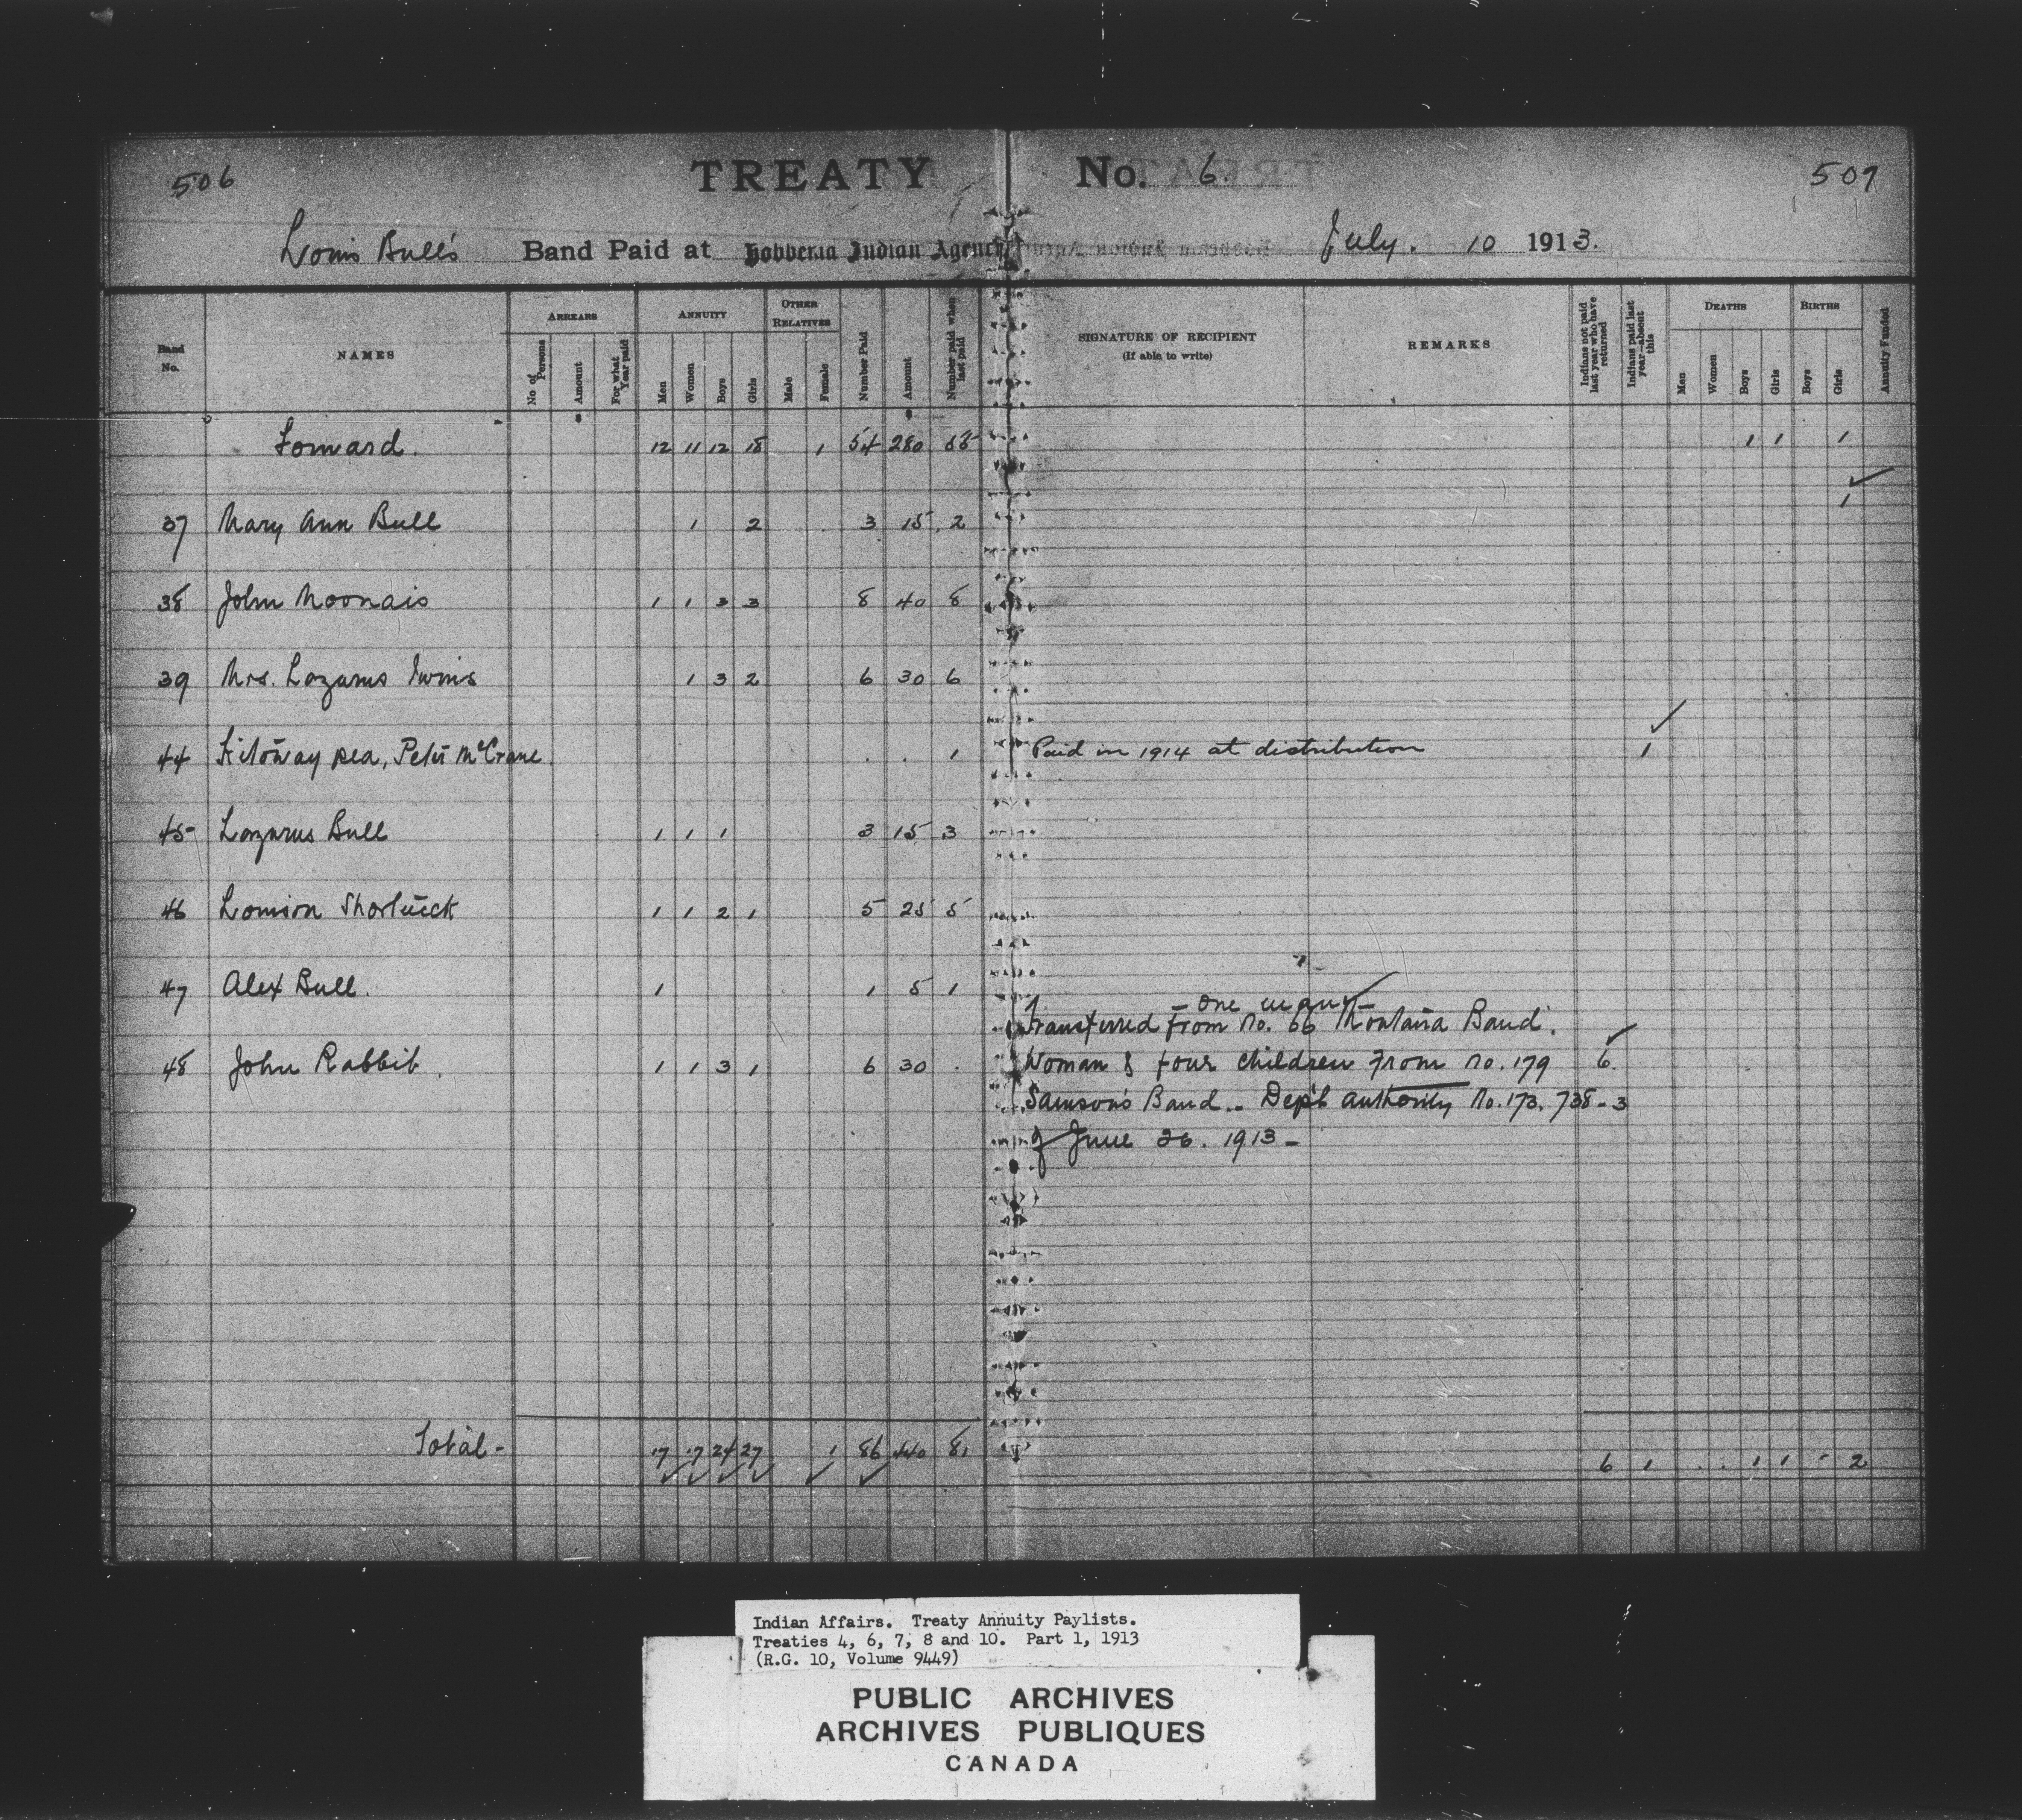 506 TREATY No. 6. 507
Louis Bull's Band Paid at Hobbema Indian Agency July. 10 1913.
Band No. NAMES ARREARS ANNUITY OTHER RELATIVES Number Paid Amount Number paid when last paid SIGNATURE OF RECIPIENT (If able to write) REMARKS Indians not paid last year who have returned Indians paid last year—absent this DEATHS BIRTHS Annuity Funded
No of Persons Amount For what Year paid Men Women Boys Girls Male Female Men Women Boys Girls Boys Girls
Forward. 12 11 12 18 1 54 280 55 1 1 1
37 Mary Ann Bull 1 2 3 15 2 1
38 John Moonais 1 1 3 3 8 40 8
39 Mrs. Lazarus Twins 1 3 2 6 30 6
44 Peter McCrane 1 Paid in 1914 at distribution 1
45 Lazarus Bull 1 1 1 3 15 3
46 1 1 2 1 5 25 5
47 Alex Bull. 1 1 5 1
- one man -
Transferred from No. 66 Montana Band.
48 John Rabbit. 1 1 3 1 6 30 . Woman & four children from No. 179 6.
Samson's Band - Dep't authority No. 173,738-3
of June 26. 1913 -
Total - 17 17 24 27 1 86 440 81 6 1 . . 1 1 - 2
Indian Affairs. Treaty Annuity Paylists.
Treaties 4, 6, 7, 8 and 10. Part 1, 1913
(R.G. 10, Volume 9449)
PUBLIC ARCHIVES
ARCHIVES PUBLIQUES
CANADA